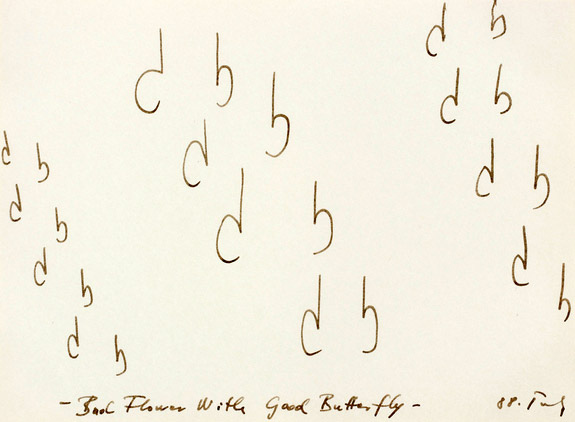 d h
d h
d h
d h
d h
d h
d h
d h
d h
d h
d h
d h
- Bad Flower With Good Butterfly -
88.